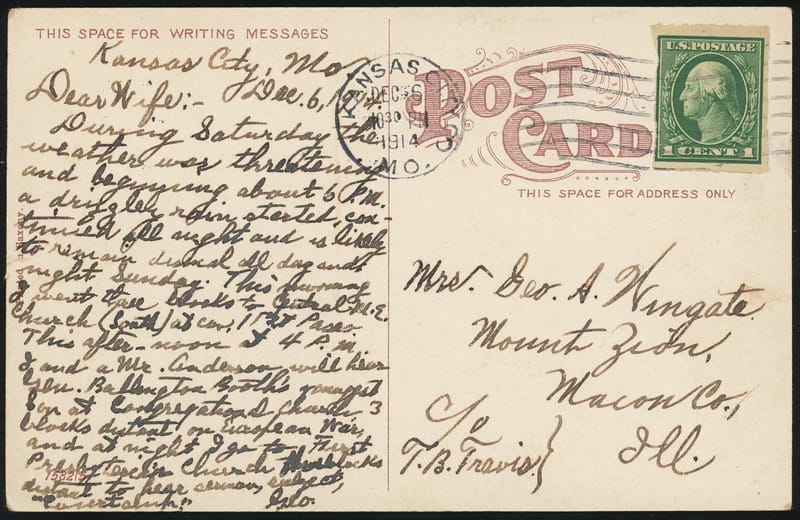 THIS SPACE FOR WRITING MESSAGES
Kansas City, Mo
Dear Wife:- Dec. 6, 1914
During Saturday the
weather was threatening
and beginning about 6 P.M.
a drizzley rain started, con-
tinued all night and is likely
to remain dismal all day and
night Sunday. This morning
I went three blocks to Central M.E.
Church (South) at cor. 11th & Paseo
This after-noon at 4 P.M.
I and a Mr. Anderson will hear
Gen. Ballington Booth's youngest
son at Congregational Church 3
blocks distant on European War,
and at night I go to First
Presbyterian Church blocks
distant to hear sermon, subject,
Geo.
158215
KANSAS CITY
DEC 6
10 30 PM
1914
MO.
POST
CARD
U.S. POSTAGE
1 CENT 1
THIS SPACE FOR ADDRESS ONLY
Mrs. Geo. A. Wingate
Mount Zion,
Macon Co.,
C/o
T.B. Travis } Ill.